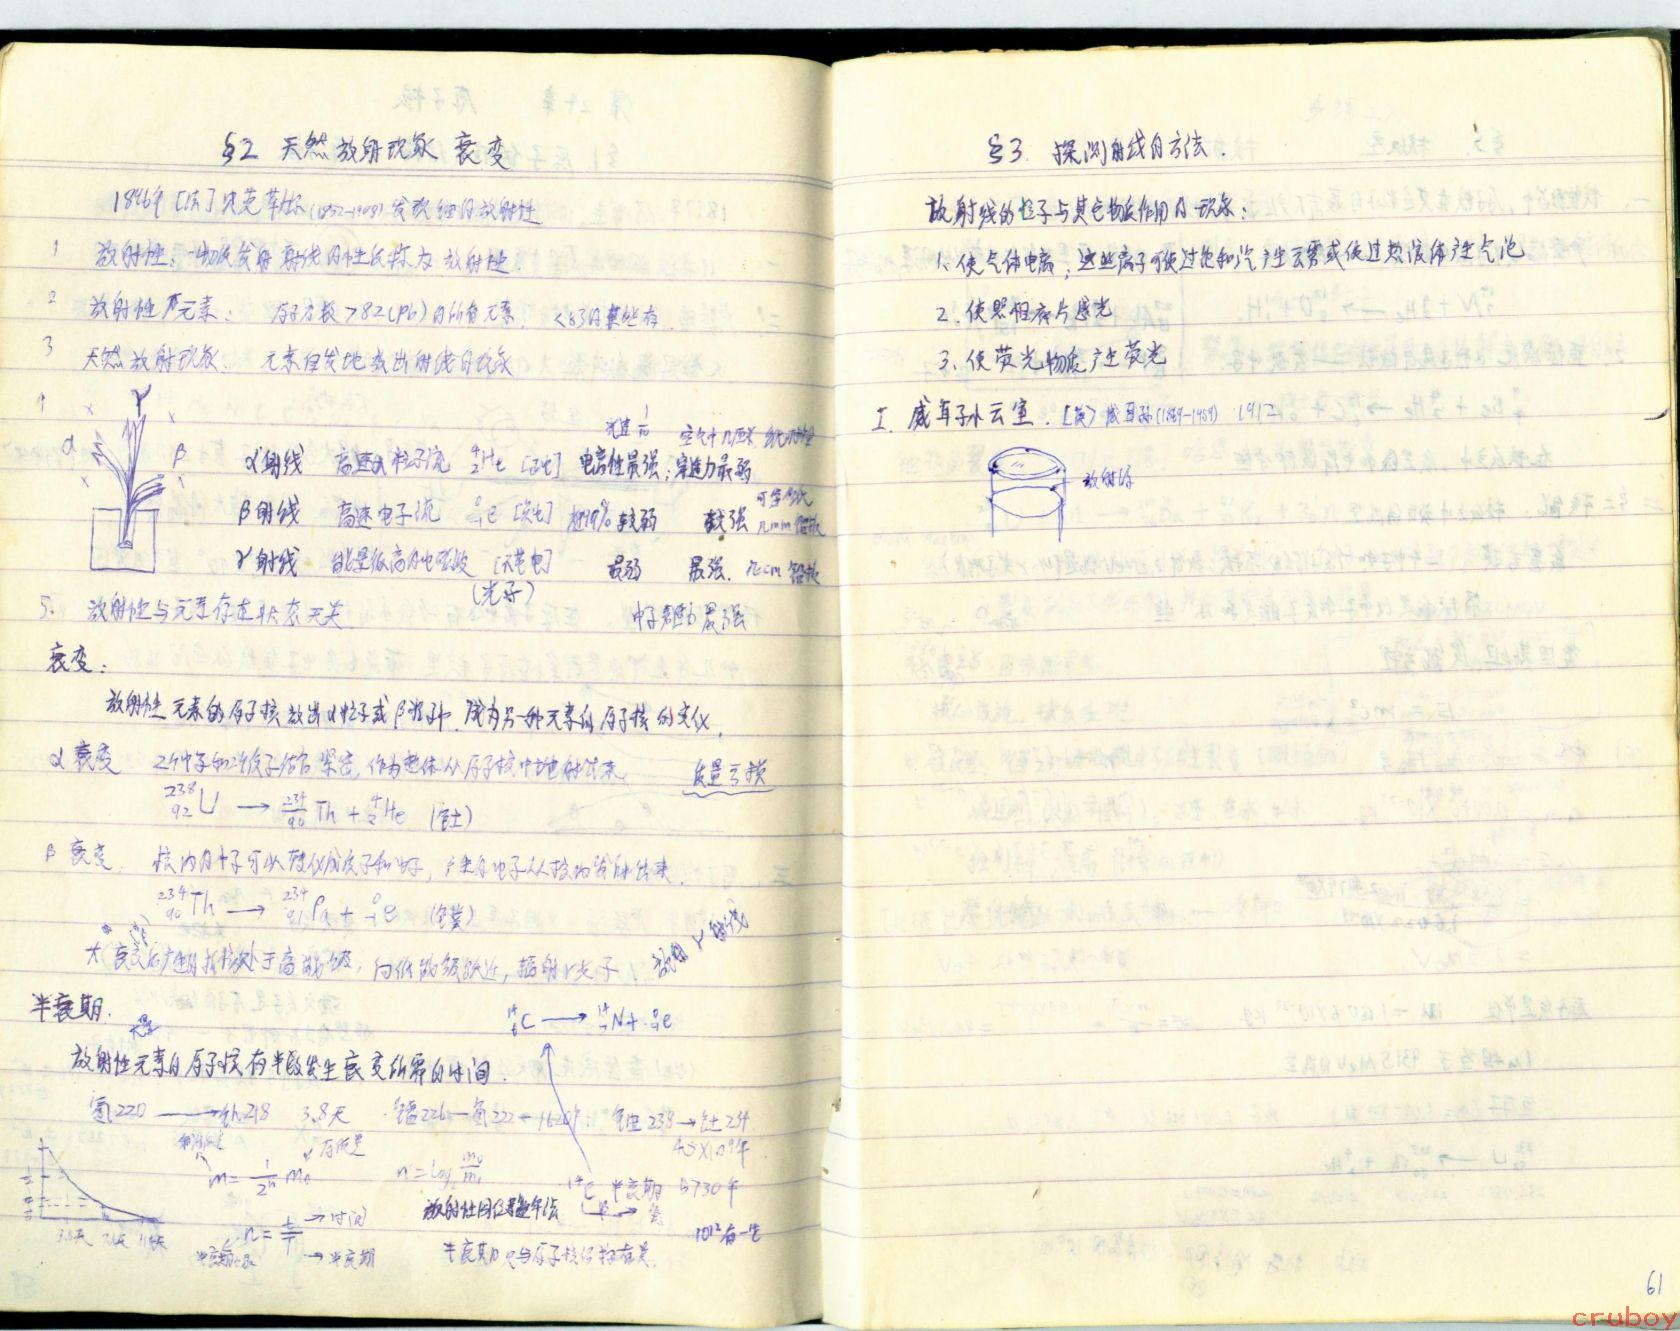 §2 天然放射现象 衰变
1896年 [法] 贝克勒尔 (1852-1908) 发现铀的放射性
1 放射性: 物质发射射线的性质称为放射性.
2 放射性元素: 原子序数 >82 (Pb) 的所有元素. <83的某些存
3 天然放射现象: 元素自发地放出射线的现象
4
α β γ
α射线 高速α粒子流 ⁴₂He [正电] 光速 1/10 电离性最强; 穿透力最弱 空气中几厘米
β射线 高速电子流 ⁰₋₁e [负电] 较弱 较强 几mm铝板
γ射线 能量很高的电磁波 [不带电] 最弱 最强. 几cm铅板
(光子)
5. 放射性与元素存在状态无关.
中子 最强
衰变:
放射性元素的原子核放出α粒子或β粒子, 成为另一种元素的原子核的变化.
α衰变 2个中子和2个质子结合紧密, 作为整体从原子核中抛射出来 质量亏损
²³⁸₉₂U → ²³⁴₉₀Th + ⁴₂He (钍)
β衰变. 核内的中子可以转化成质子和电子, 产生的电子从核内发射出来.
²³⁴₉₀Th → ²³⁴₉₁Pa + ⁰₋₁e (镤)
衰变后产生的新核处于高能级, 向低能级跃迁, 辐射γ光子. γ射线
半衰期:
¹⁴₆C → ¹⁴₇N + ⁰₋₁e
大量
放射性元素的原子核有半数发生衰变所需的时间.
氡220 → 钋218 3.8天 镭226 → 氡222 1620年 铀238 → 钍234
4.5×10⁹年
原质量
m = 1/2ⁿ m₀ n = log₂ m₀/m ¹⁴C 半衰期 5730年
放射性同位素 年法
n = t/T → 时间 → 半衰期
3.8天
半衰期只与原子核结构有关.
§3. 探测射线的方法.
放射线的粒子与其它物质作用的现象:
1. 使气体电离; 这些离子可使过饱和汽产生云雾或使过热液体产生气泡
2. 使照相底片感光
3. 使荧光物质产生荧光
I. 威耳孙云室. [英] 威耳孙 (1869-1959) 1912
放射源
61
cruboy